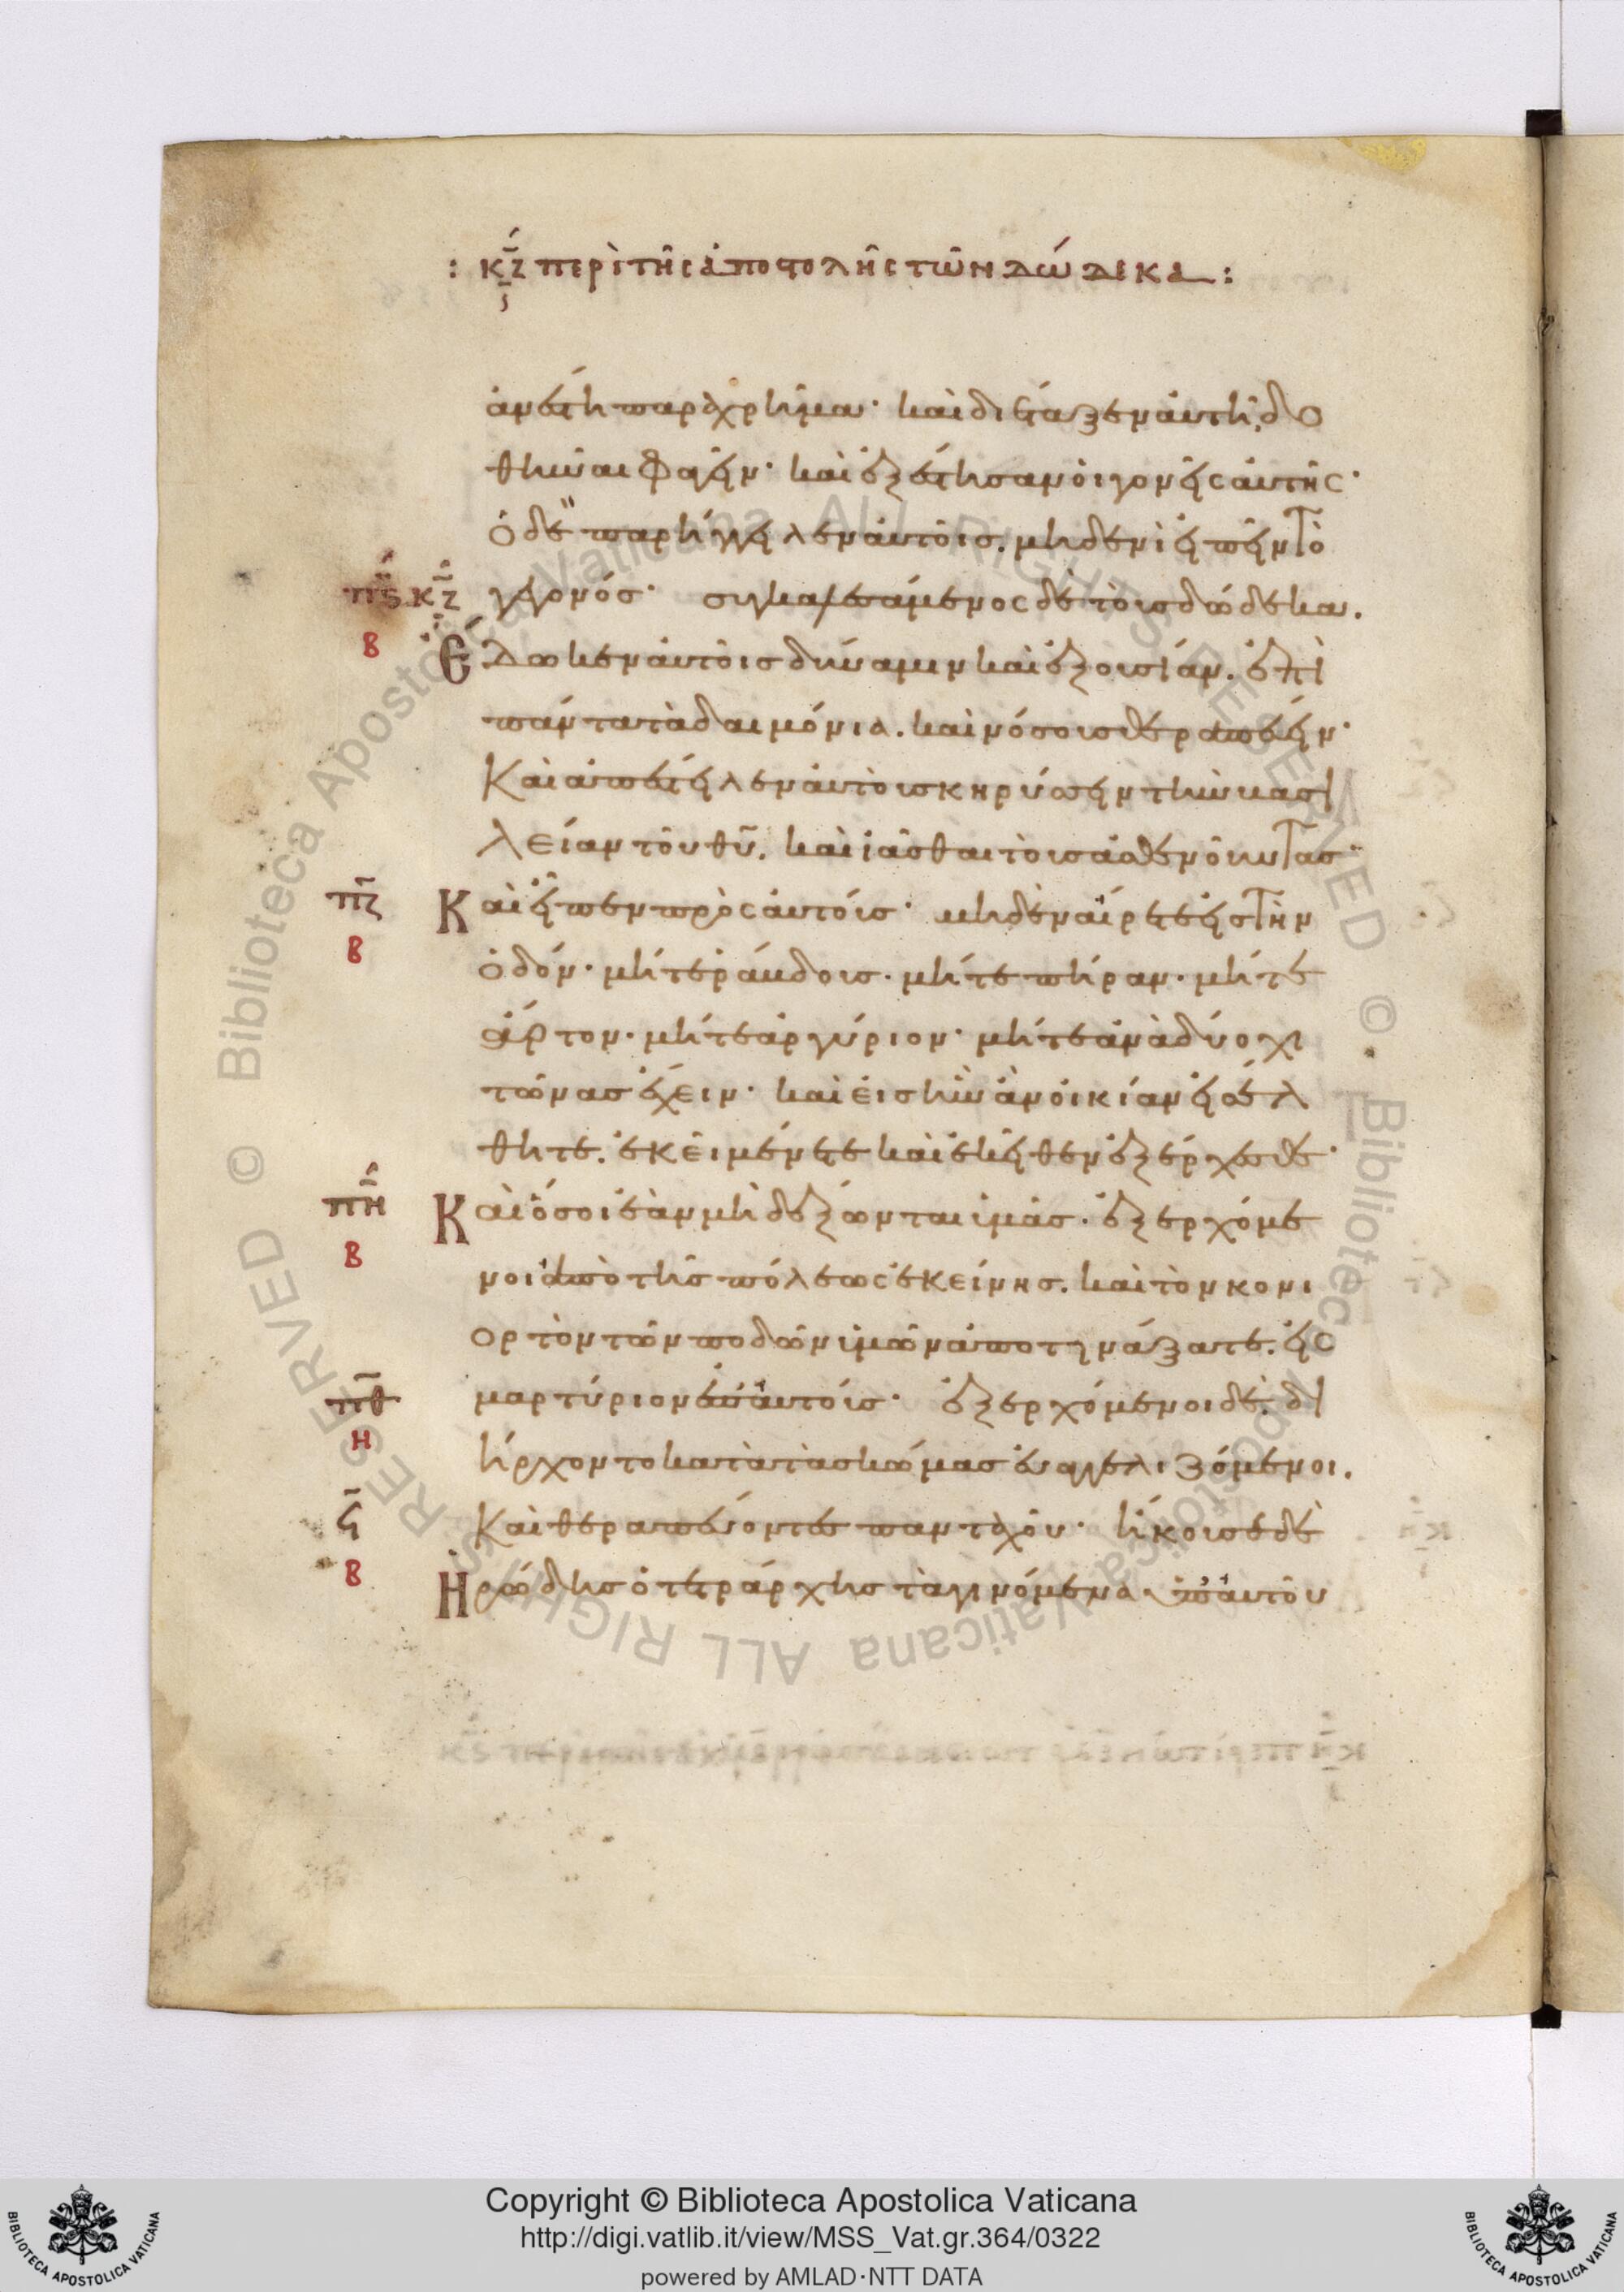 : κζ περὶ τῆς ἀποστολῆς τῶν δώδεκα :
ἀνέστη παραχρῆμα· καὶ διέταξεν αὐτῇ, δο
θῆναι φαγεῖν· καὶ ἐξέστησαν οἱ γονεῖς αὐτῆς·
ὁ δὲ παρήγγειλεν αὐτοῖς. μηδενὶ εἰπεῖν τὸ
πς κζ γεγονός· συγκαλεσάμενος δὲ τοὺς δώδεκα.
β Ἔδωκεν αὐτοῖς δύναμιν καὶ ἐξουσίαν. ἐπὶ
πάντα τὰ δαιμόνια. καὶ νόσους θεραπεύειν·
Καὶ ἀπέστειλεν αὐτοὺς κηρύσσειν τὴν βασι
λείαν τοῦ θυ̅. καὶ ἰᾶσθαι τοὺς ἀσθενοῦντας
πζ Καὶ εἶπεν πρὸς αὐτούς· μηδὲν αἴρετε εἰς τὴν
β ὁδόν· μήτε ῥάβδους· μήτε πήραν· μήτε
ἄρτον· μήτε ἀργύριον· μήτε ἀνὰ δύο χι
τῶνας ἔχειν· καὶ εἰς ἣν ἂν οἰκίαν εἰσέλ
θητε. ἐκεῖ μένετε καὶ ἐκεῖθεν ἐξέρχεσθε·
πη Καὶ ὅσοι ἐὰν μὴ δέξωνται ὑμᾶς. ἐξερχόμε
β νοι ἀπὸ τῆς πόλεως ἐκείνης. καὶ τὸν κονι
ορτὸν τῶν ποδῶν ὑμῶν ἀποτινάξατε. εἰς
πθ μαρτύριον ἐπ' αὐτούς· ἐξερχόμενοι δὲ. δι
η ήρχοντο κατὰ τὰς κώμας εὐαγγελιζόμενοι.
ϟ Καὶ θεραπεύοντες πανταχοῦ· ἤκουσε δὲ
β Ἡρώδης ὁ τετράρχης τὰ γινόμενα ὑπ' αὐτοῦ
Copyright © Biblioteca Apostolica Vaticana
http://digi.vatlib.it/view/MSS_Vat.gr.364/0322
powered by AMLAD·NTT DATA